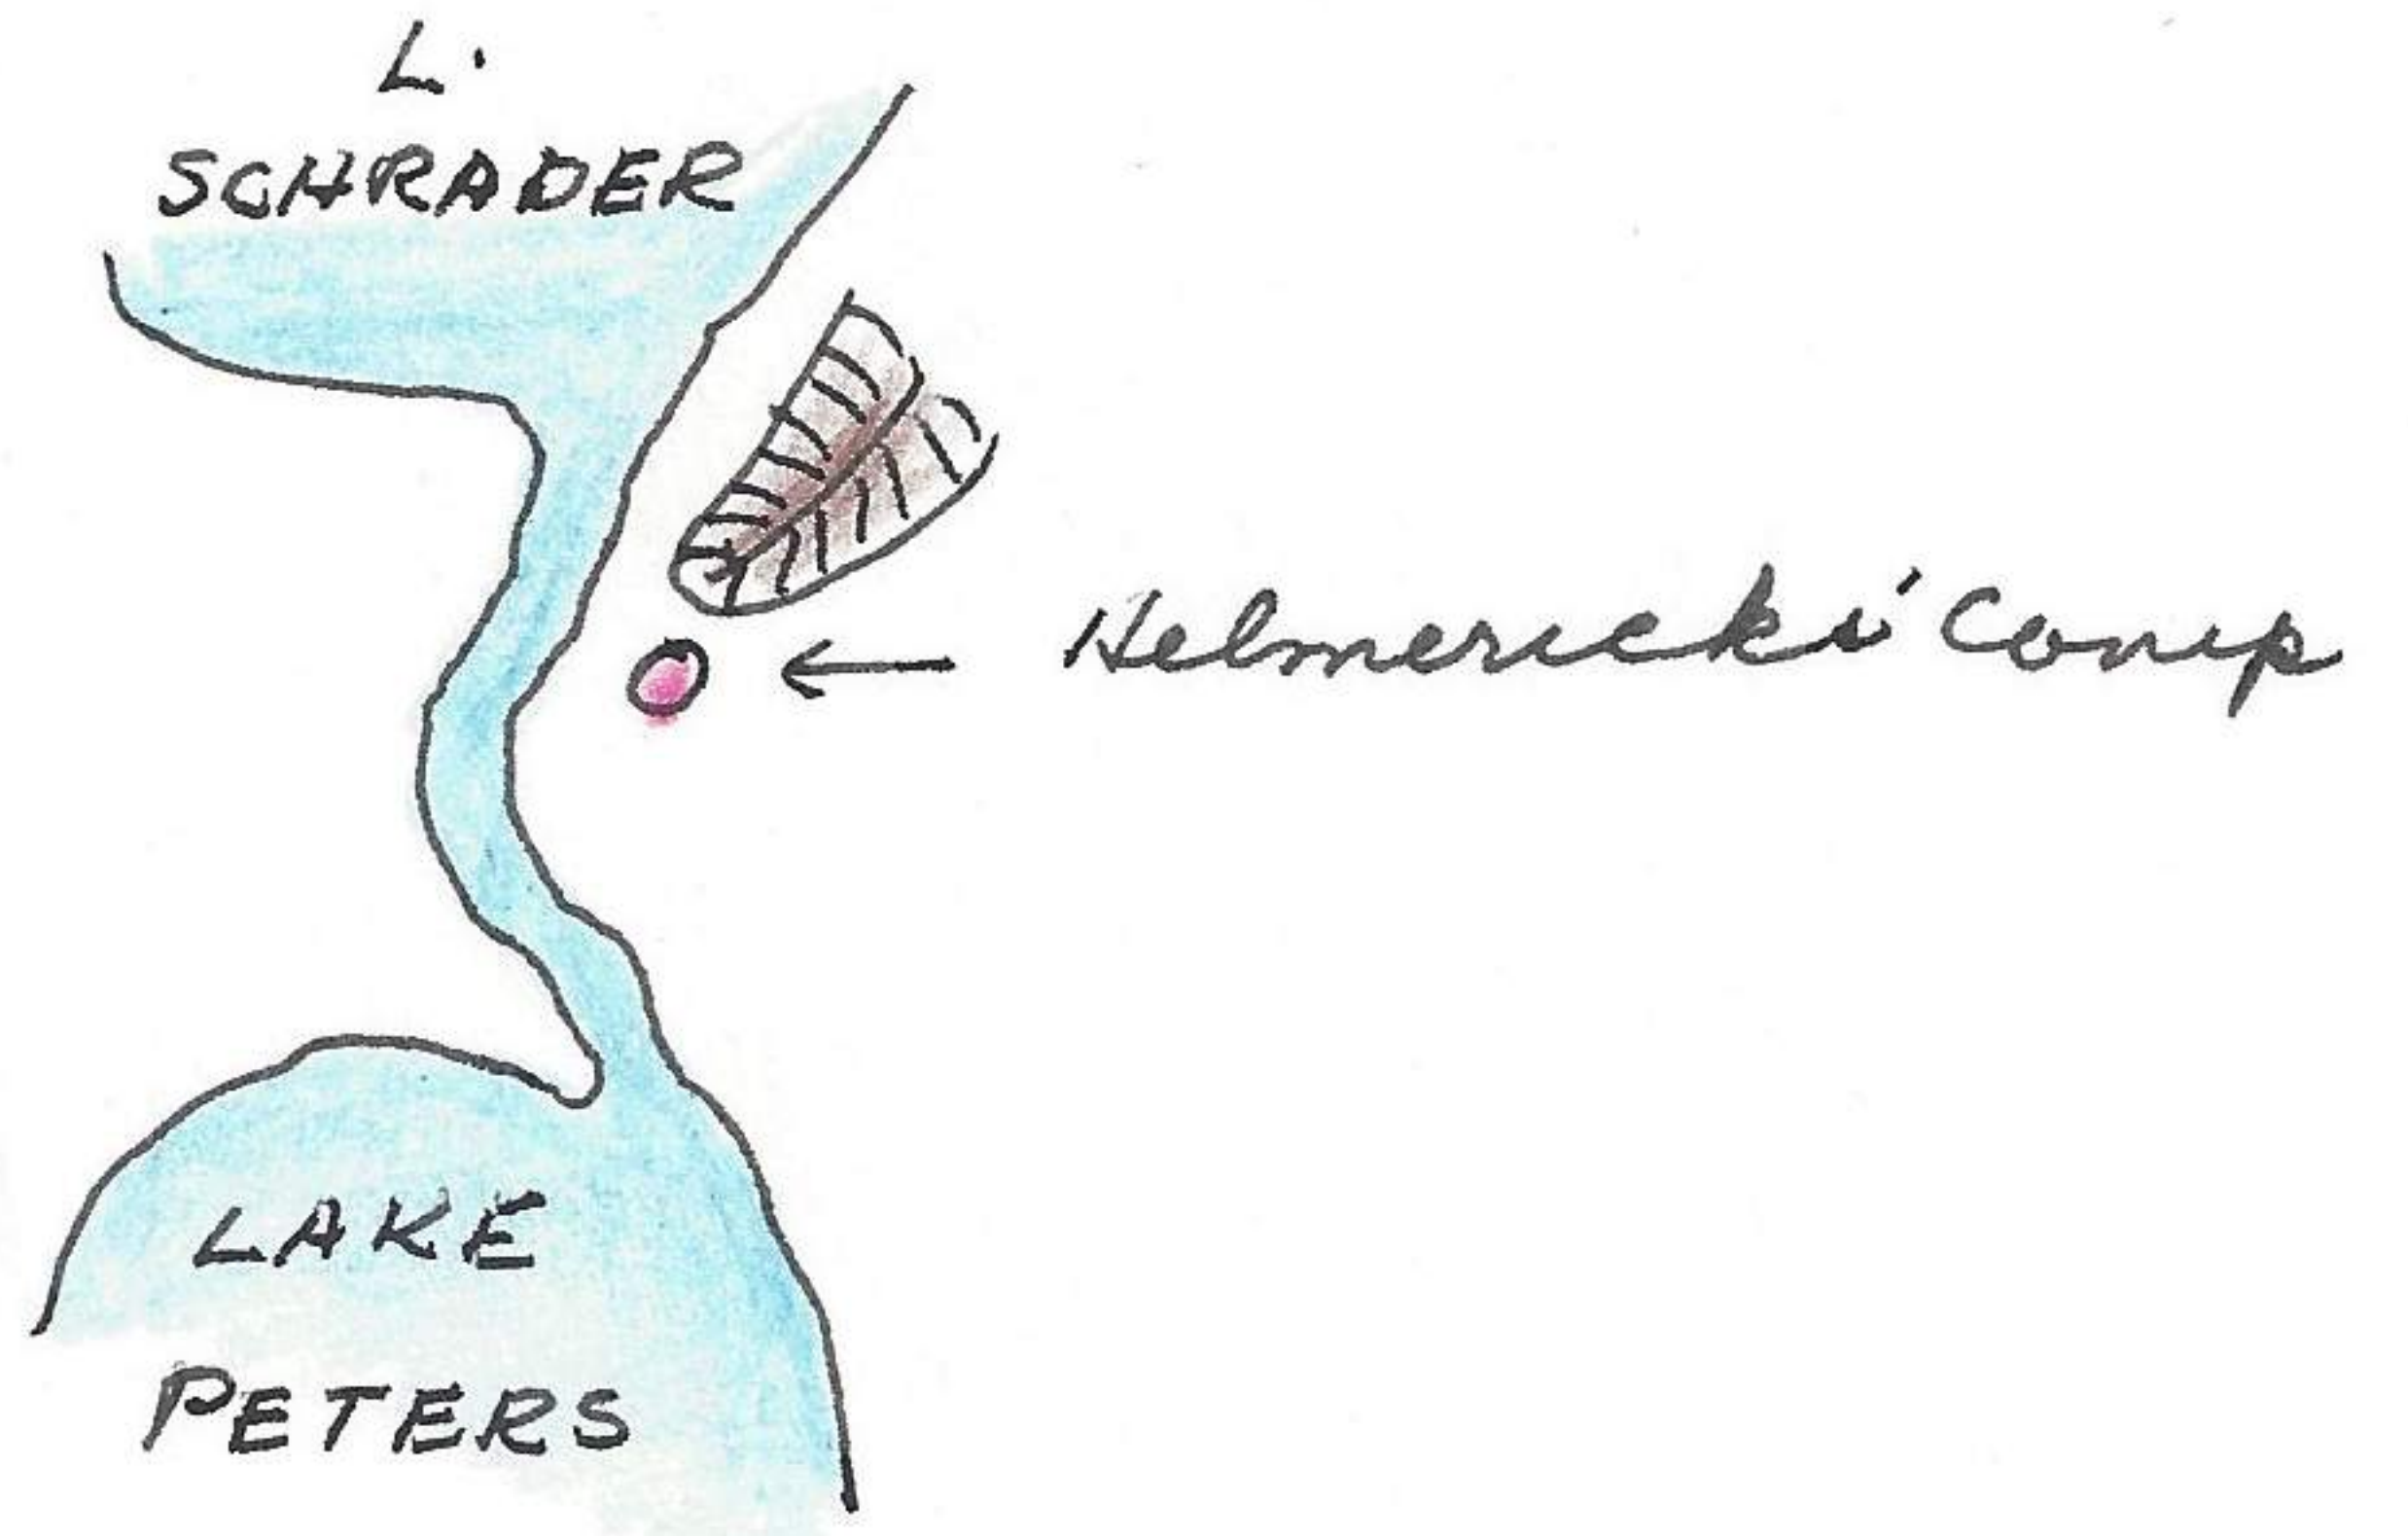 L.
SCHRADER
Helmericks' Camp
LAKE
PETERS